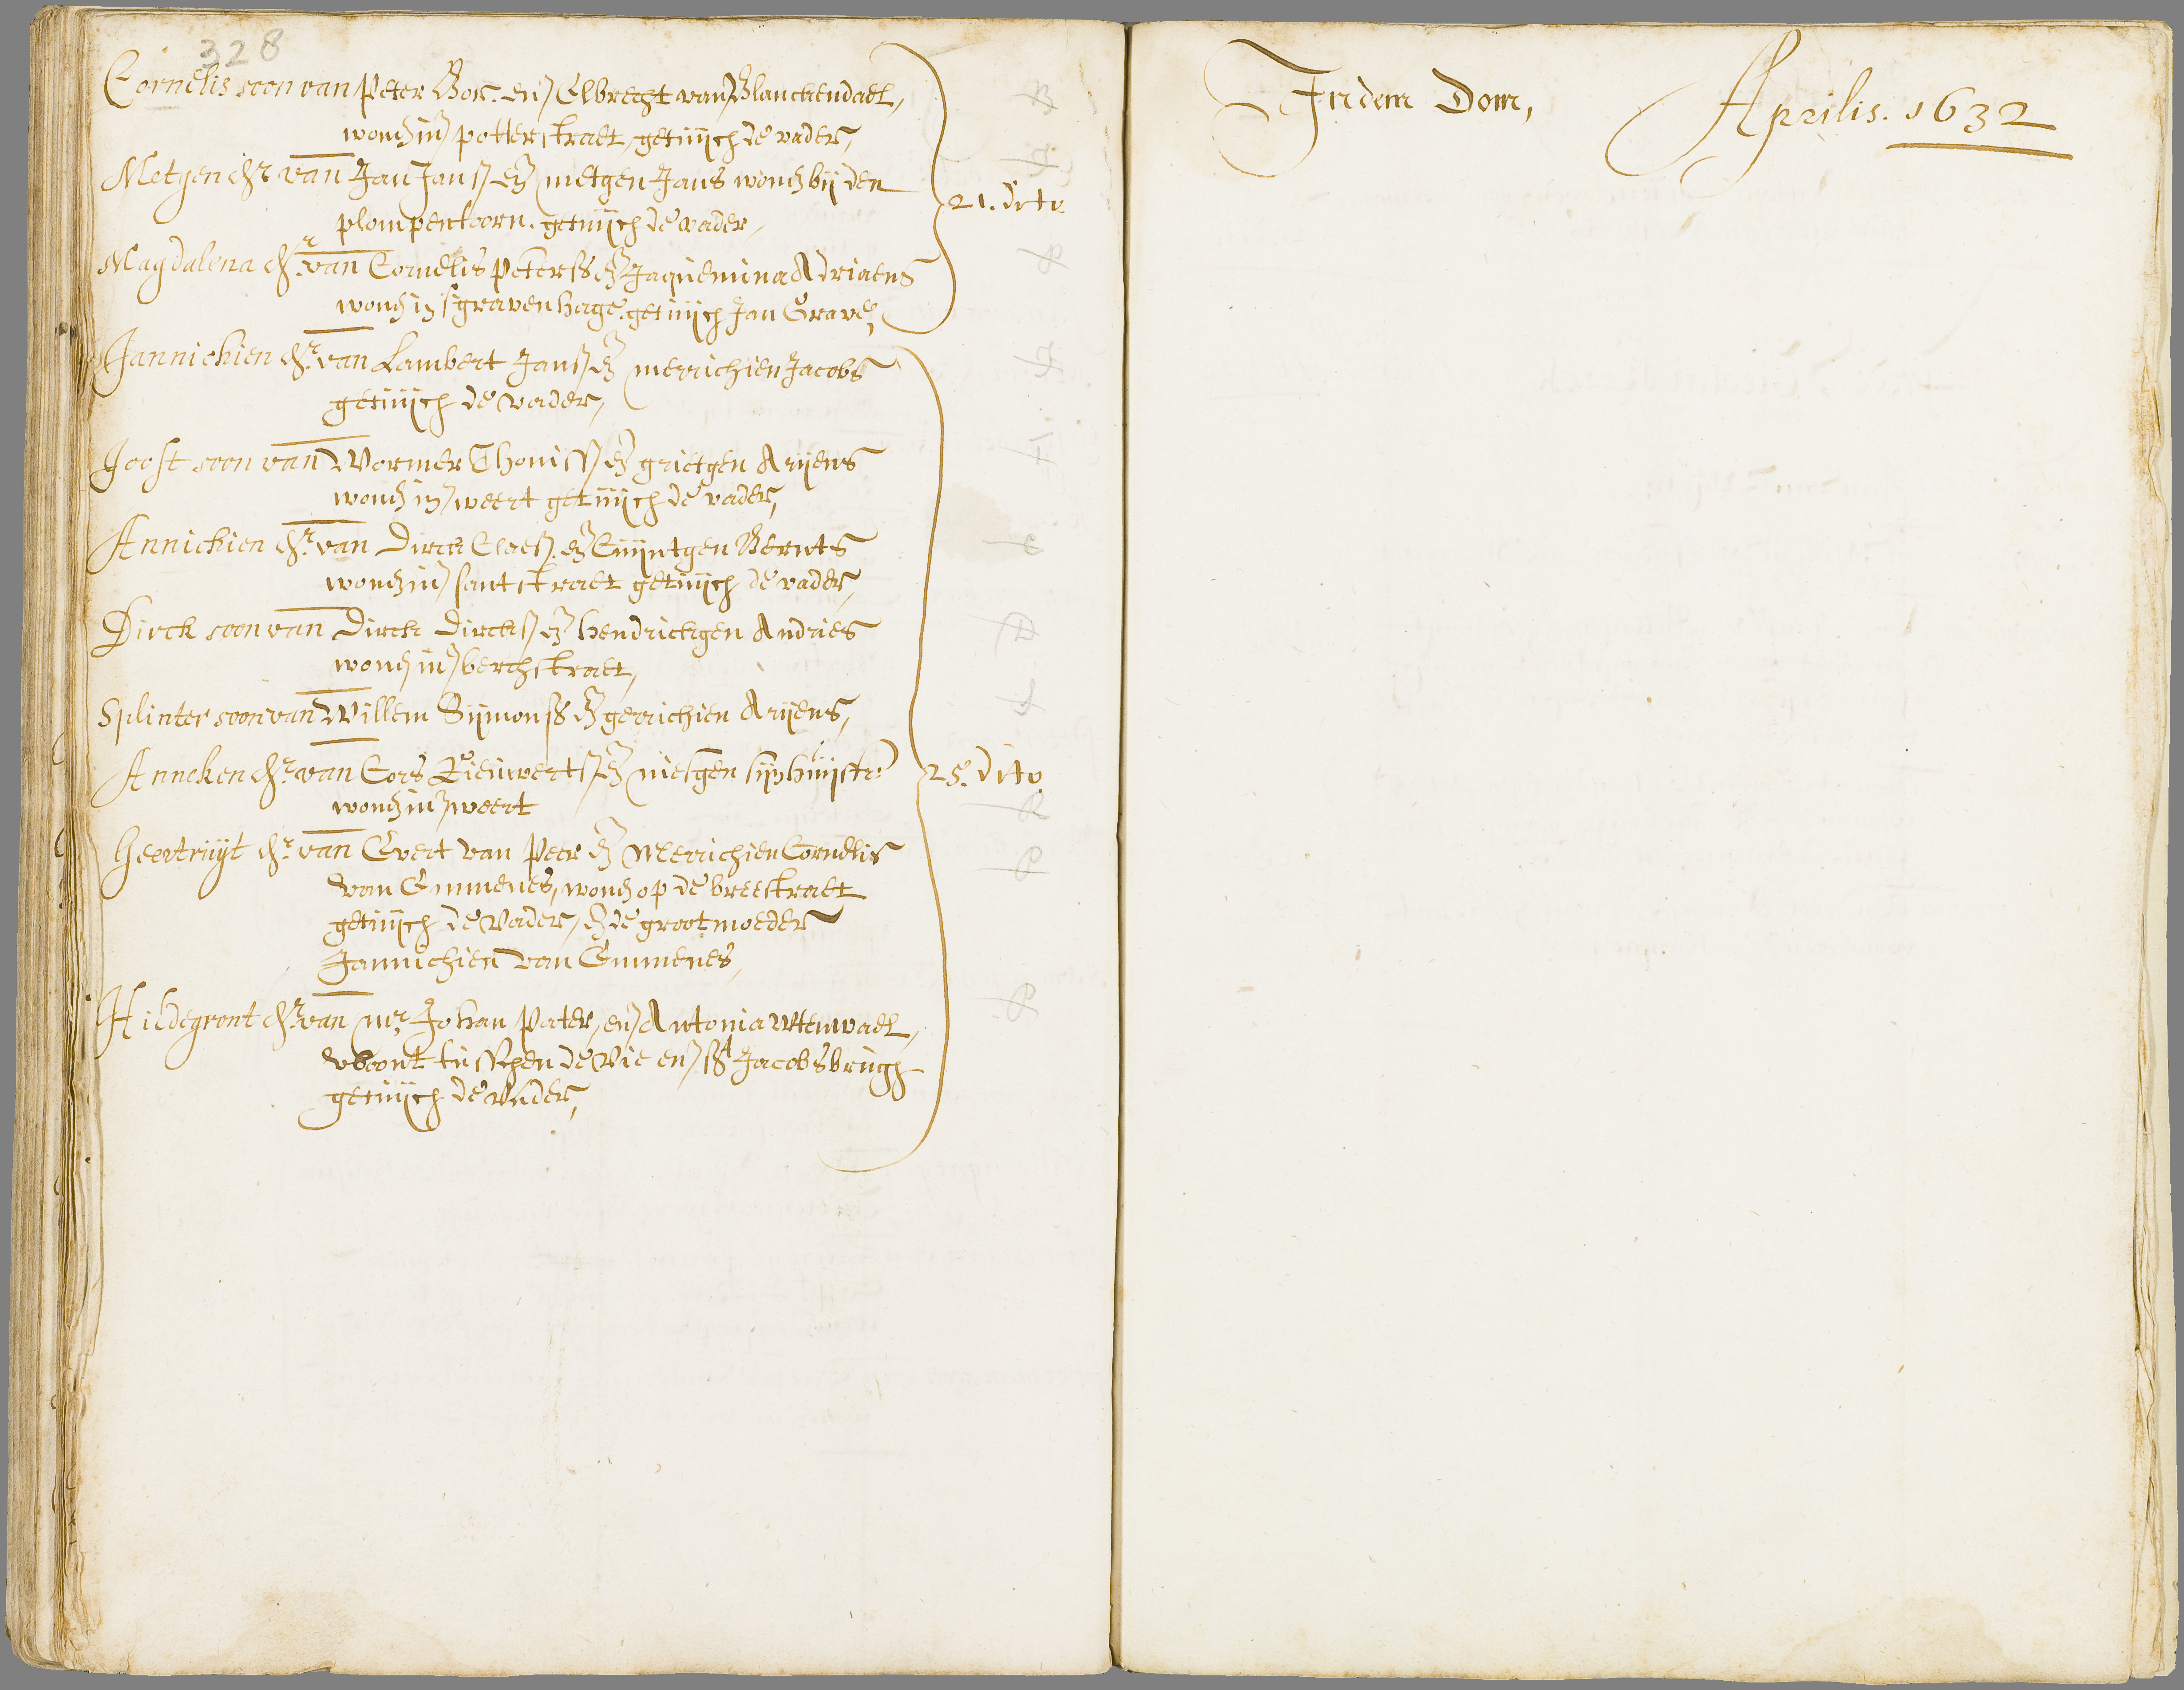 328
Cornelis soon van Peter Bor. en Elbrecht van Blanckendael,
wonen in potterstraet, getuijch de vader,
Metgen dr van Jan Jans en metgen Jans wonen bij den
plompentoorn. getuijch de vader,
21. dito
Magdalena dr. van Cornelis Peterss en Jaquemina Adriaens
wonen in sgravenhage. getuijch Jan Grave,
Jannichien dr. van Lambert Jans en merrichien Jacobs
getuijch de vader,
Joost soon van Wormer Thoniss en grietgen Arijens
wonen in weert getuijch de vader,
Annichien dr. van Dirck Claes. en Cuijntgen Bernts
wonen in santstraet getuijch de vader,
Dirck soon van Dirck Dircks en hendrickgen Andries
wonen in berchstraet,
Splinter soon van Willem Sijmonss en gerrichien Arijens,
Anneken dr. van Cors Rieuwerts en nielgen sijn huijsvr
25. dito
wonen in weert
Geertruijt dr. van Evert van Peer en Merrichien Cornelis
van Emmenes, wonen op de breestraet
getuijch de Vader, en de grootmoeder
Jannichien van Emmenes,
Hildegront dr. van mr. Johan Pater, en Antonia Wtenwael,
woont tusschen de Vie en st Jacobsbrugh
getuijch de vader,
In den Dom,
Aprilis. 1632